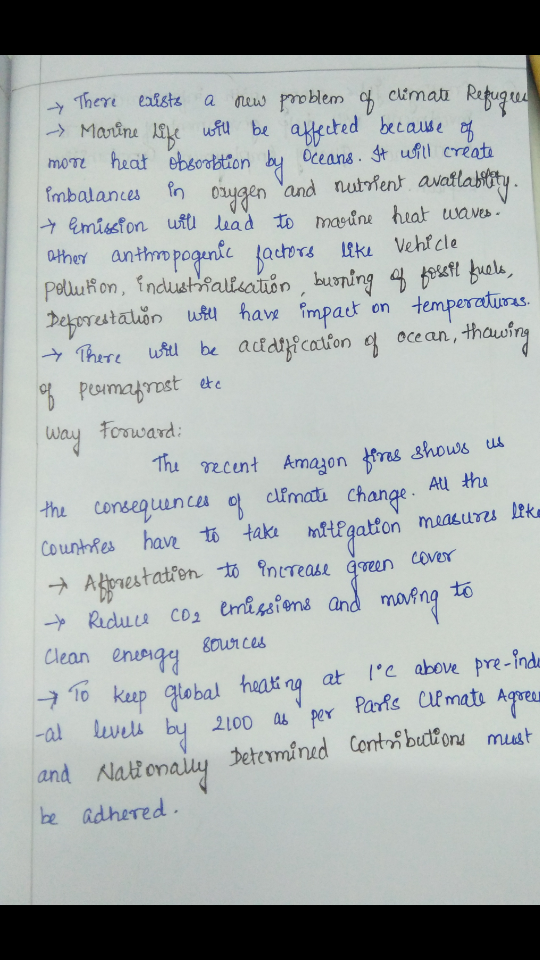 → There exists a new problem of climate Refugee
→ Marine life will be affected because of
more heat obsorbtion by oceans. It will create
imbalances in oxygen and nutrient availability.
→ Emission will lead to marine heat waves.
other anthropogenic factors like Vehicle
pollution, industrialisation, burning of fossil fuels,
Deforestation will have impact on temperatures.
→ There will be acidification of ocean, thawing
of permafrost etc
Way Forward:
The recent Amazon fires shows us
the consequences of climate change. All the
countries have to take mitigation measures like
→ Afforestation to increase green cover
→ Reduce CO2 emissions and moving to
clean energy sources
→ To keep global heating at 1°C above pre-indu
-al levels by 2100 as per Paris Climate Agree
and Nationally Determined Contributions must
be adhered.